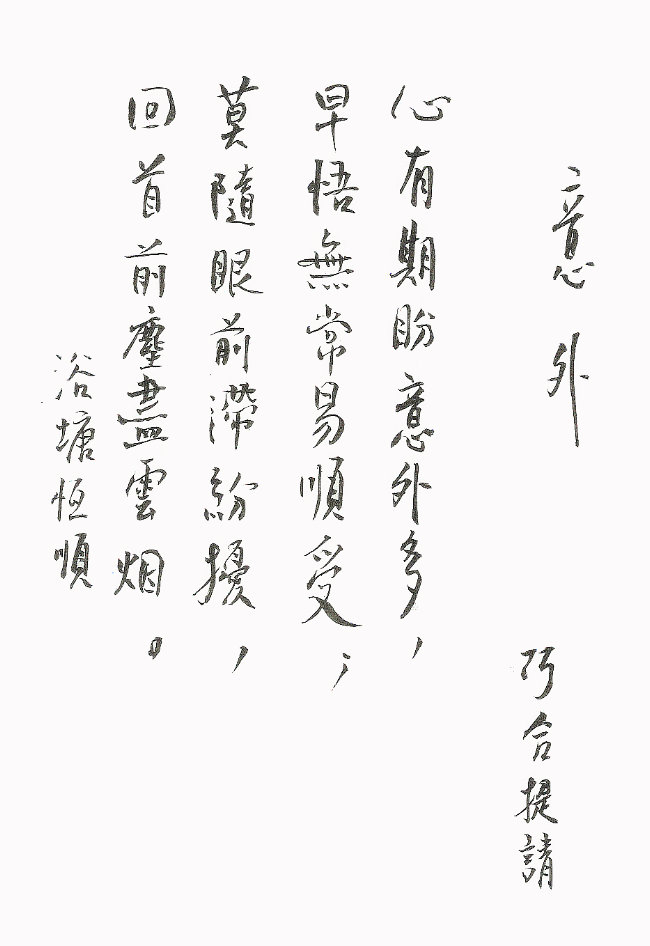 意外
阿合提請
心有期盼意外多，
早悟無常易順受；
莫隨眼前滯紛擾，
回首前塵盡雲烟。
浴塘恆順